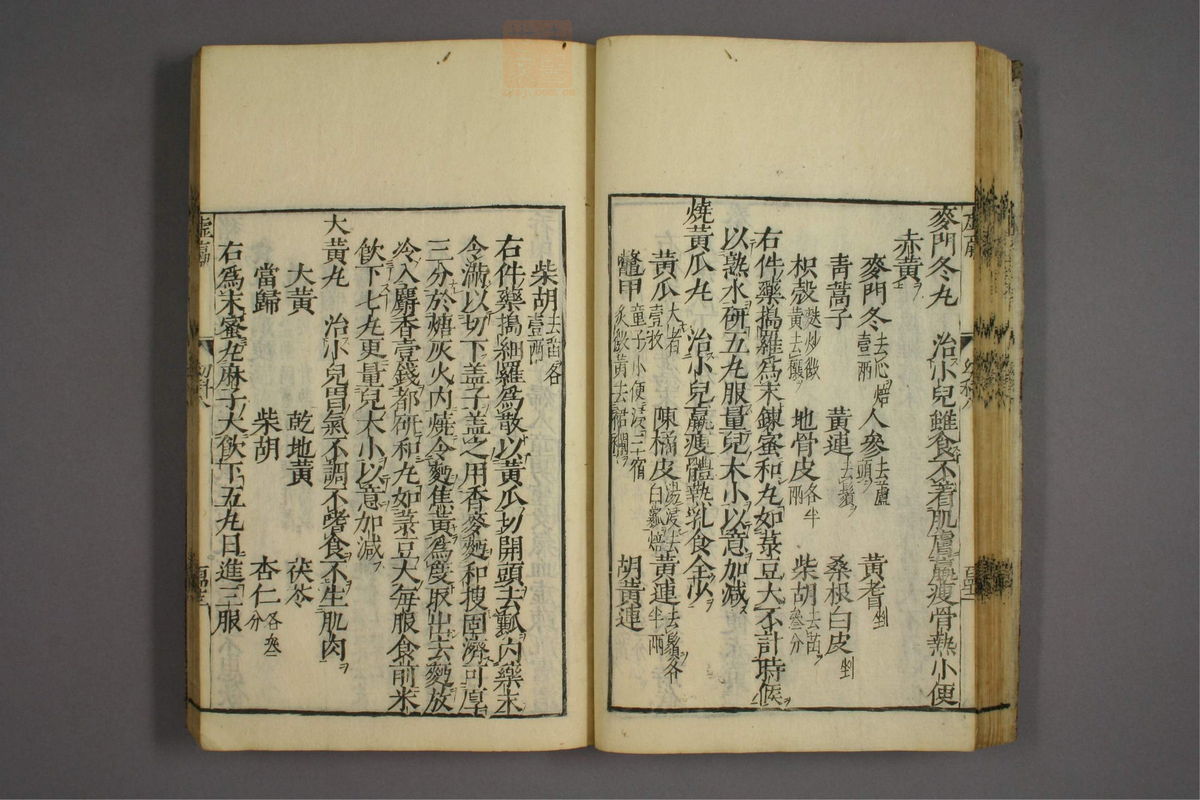 麥門冬丸　治小兒雖食不着肌膚羸瘦骨熱小便
赤黃
麥門冬去心焙壹兩　人參去蘆頭　黃耆剉
青蒿子　黃連去鬚　桑根白皮剉
枳殼麩炒微黃去瓤　地骨皮各半兩　柴胡去苗叄分
右件藥搗羅爲末鍊蜜和丸如菉豆大不計時候
以熟水研五丸服量兒大小以意加減
燒黃瓜丸　治小兒羸瘦體熱乳食全少
黃瓜大者壹枚　陳橘皮湯浸去白瓤焙　黃連去鬚各半兩
鼈甲童子小便浸三宿炙微黃去裙襴　胡黃連
柴胡去苗各壹兩
右件藥搗細羅爲散以黃瓜切開頭去瓤内藥末
令滿以切下盖子盖之用香麥麪和搜固濟可厚
三分於煻灰火内燒令麪焦黃爲度取出去麪放
冷入麝香壹錢都研和丸如菉豆大每服食前米
飲下七丸更量兒大小以意加減
大黃丸　治小兒胃氣不調不嗜食不生肌肉
大黃　乾地黃　茯苓
當歸　柴胡　杏仁各叄分
右爲末蜜丸麻子大飲下五丸日進三服